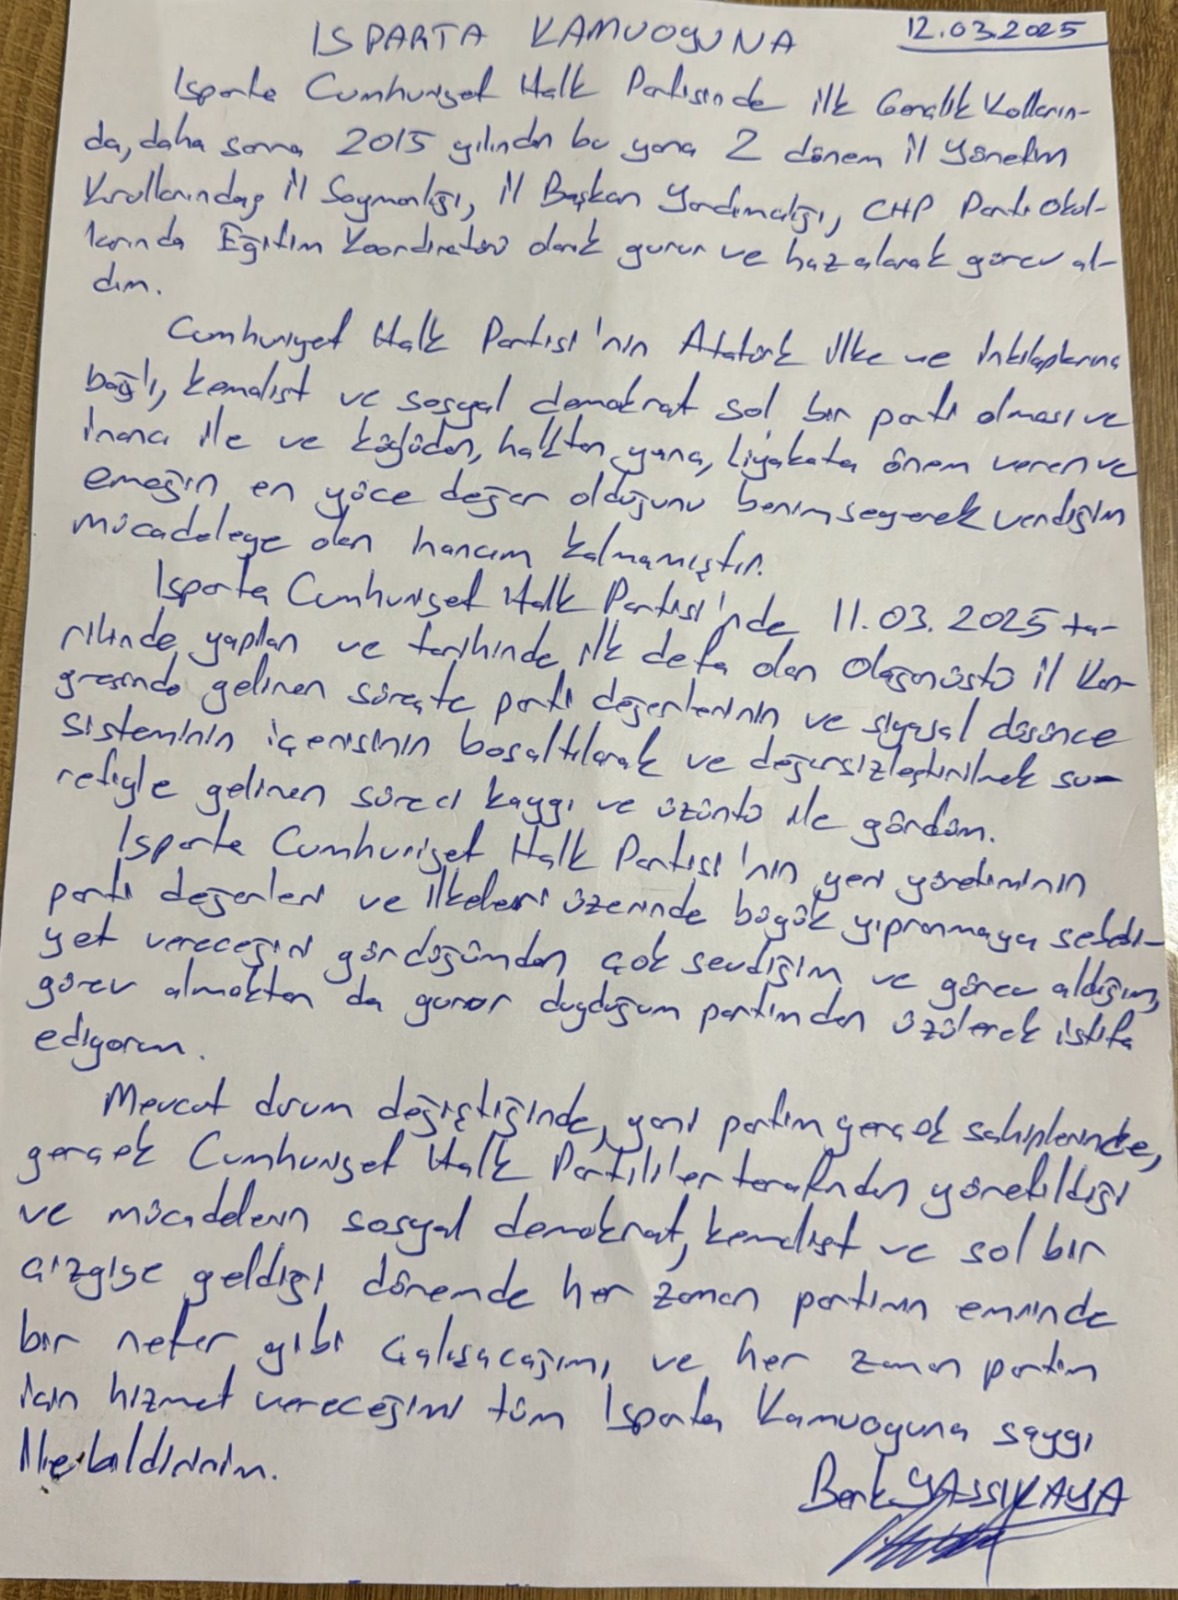 ISPARTA KAMUOGUNA
12.03.2025
Isparta Cumhuriyet Halk Partisinde ilk Gençlik Kolların-
da, daha sonra 2015 yılından bu yana 2 dönem il Yönetim
Kurullarındaş il Saymanlığı, il Başkan Yardımcılığı, CHP Parti Okul-
larında Eğitim Koordinatörü olarak gurur ve haz alarak görev al-
dım.
Cumhuriyet Halk Partisi'nin Atatürk ilke ve inkılaplarına
bağlı, kemalist ve sosyal demokrat sol bir parti olması ve
inancı ile ve köylüden, halktan yana, liyakata önem veren ve
emeğin en yüce değer olduğunu benimseyerek verdiğim
mücadeleye olan inancım kalmamıştır.
Isparta Cumhuriyet Halk Partisi'nde 11.03.2025 ta-
rihinde yapılan ve tarihinde ilk defa olan Olağanüstü il Kon-
gresinde gelinen süreçte parti değerlerinin ve siyasal düşünce
sisteminin içerisinin boşaltılarak ve değersizleştirilmek su-
retiyle gelinen süreci kaygı ve üzüntü ile gördüm.
Isparta Cumhuriyet Halk Partisi'nin yeni yönetiminin
parti değerleri ve ilkeleri üzerinde büyük yıpranmaya sebebi-
yet vereceğini gördüğümden çok sevdiğim ve görev aldığım,
görev almaktan da gurur duyduğum partimden üzülerek istifa
ediyorum.
Mevcut durum değiştiğinde, yani partim gerçek sahiplerince,
gerçek Cumhuriyet Halk Partililer tarafından yönetildiği
ve mücadelenin sosyal demokrat, kemalist ve sol bir
çizgiye geldiği dönemde her zaman partimin emrinde
bir nefer gibi çalışacağımı, ve her zaman partim
için hizmet vereceğimi tüm Isparta Kamuoyuna saygı
ile bildiririm.
Berk YASSIKAYA